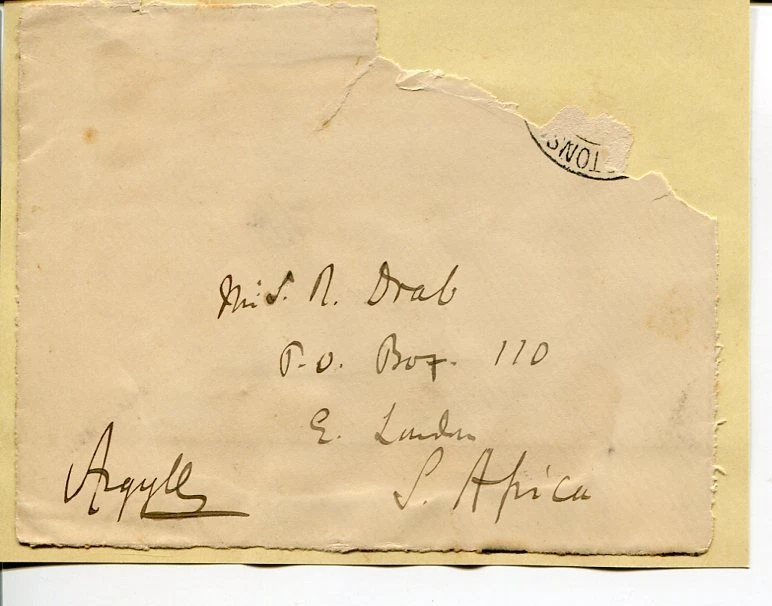 TONS
Mis. R. Drab
P.O. Box. 110
E. London
S. Africa
Argyll